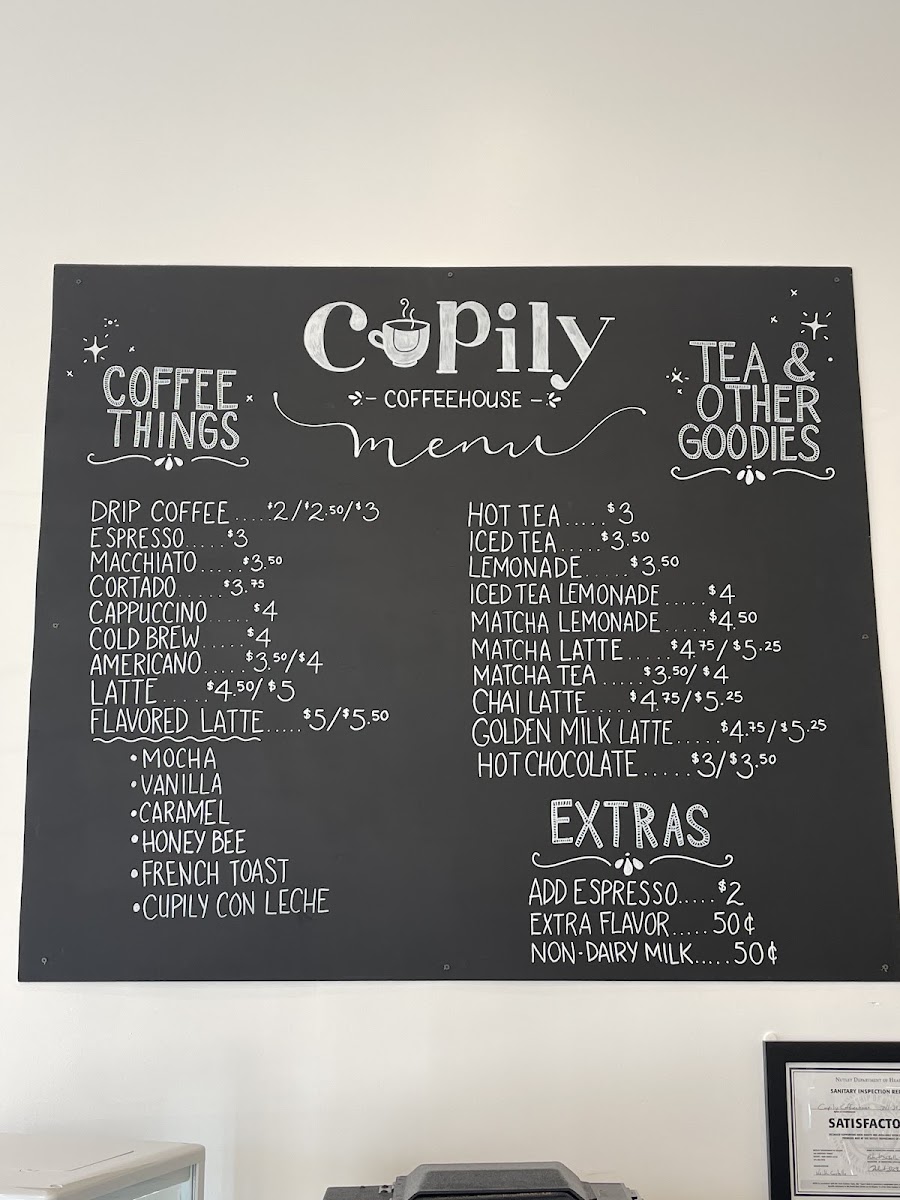 Cupily
- COFFEEHOUSE -
menu
COFFEE
THINGS
DRIP COFFEE.....$2/$2.50/$3
ESPRESSO.....$3
MACCHIATO.....$3.50
CORTADO.....$3.75
CAPPUCCINO.....$4
COLD BREW.....$4
AMERICANO.....$3.50/$4
LATTE.....$4.50/$5
FLAVORED LATTE.....$5/$5.50
•MOCHA
•VANILLA
•CARAMEL
•HONEY BEE
•FRENCH TOAST
•CUPILY CON LECHE
TEA &
OTHER
GOODIES
HOT TEA.....$3
ICED TEA.....$3.50
LEMONADE.....$3.50
ICED TEA LEMONADE.....$4
MATCHA LEMONADE.....$4.50
MATCHA LATTE.....$4.75/$5.25
MATCHA TEA.....$3.50/$4
CHAI LATTE.....$4.75/$5.25
GOLDEN MILK LATTE.....$4.75/$5.25
HOT CHOCOLATE.....$3/$3.50
EXTRAS
ADD ESPRESSO.....$2
EXTRA FLAVOR.....50¢
NON-DAIRY MILK.....50¢
NUTLEY DEPARTMENT OF
SANITARY INSPECTION
SATISFACTO